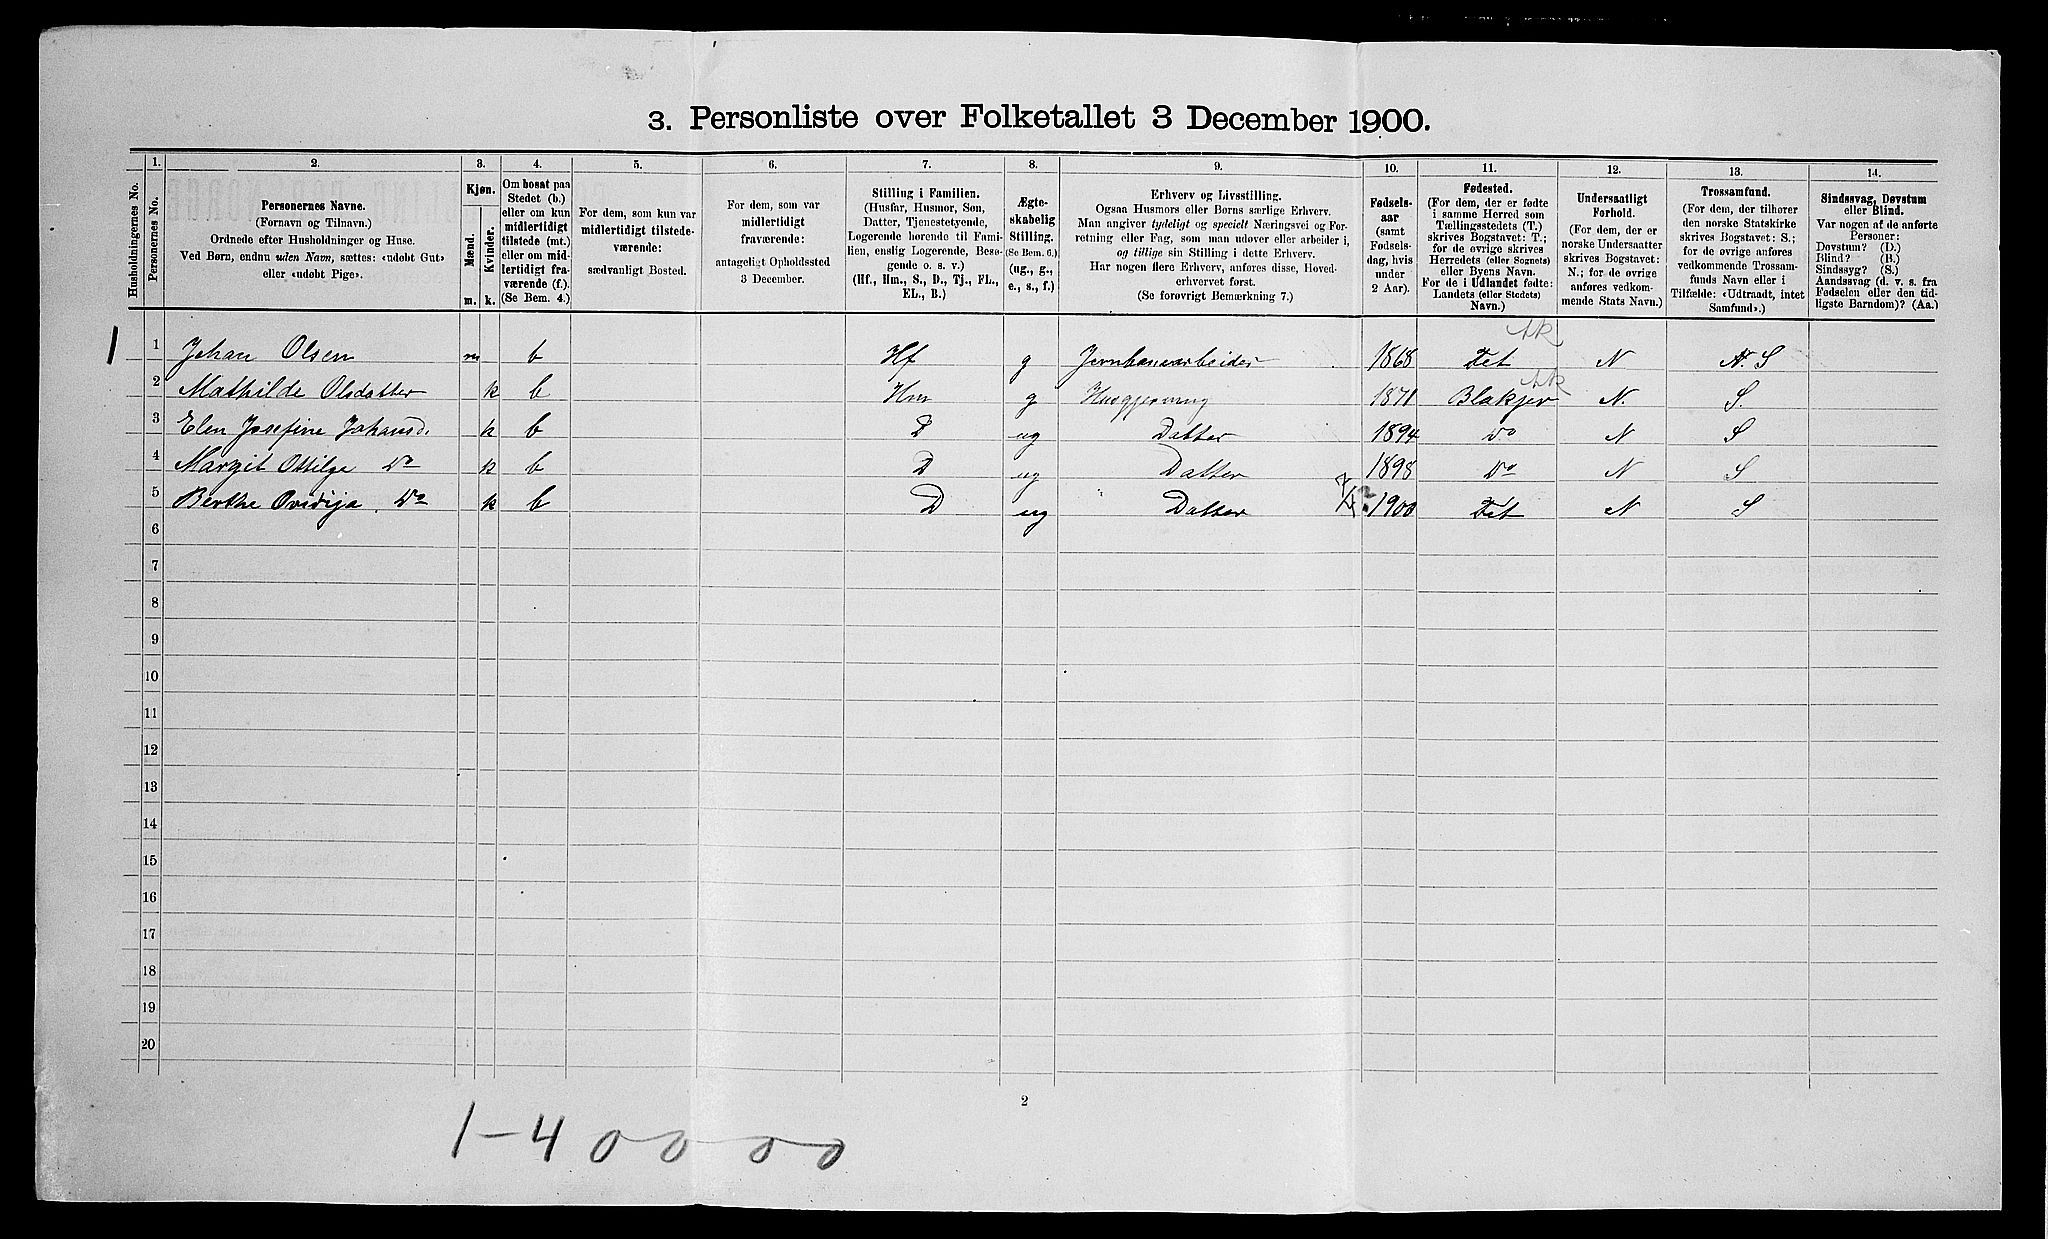 3. Personliste over Folketallet 3 December 1900.
1. 2. 3. 4. 5. 6. 7. 8. 9. 10. 11. 12. 13. 14.
Husholdningernes No.
Personernes No.
Personernes Navne.
(Fornavn og Tilnavn.)
Ordnede efter Husholdninger og Huse.
Ved Børn, endnu uden Navn, sættes: «udøbt Gut»
eller «udøbt Pige».
Kjøn.
Mænd.
Kvinder.
m. k.
Om bosat paa
Stedet (b.)
eller om kun
midlertidigt
tilstede (mt.)
eller om mid-
lertidigt fra-
værende (f.).
(Se Bem. 4.)
For dem, som kun var
midlertidigt tilstede-
værende:
sædvanligt Bosted.
For dem, som var
midlertidigt
fraværende:
antageligt Opholdssted
3 December.
Stilling i Familien.
(Husfar, Husmor, Søn,
Datter, Tjenestetyende,
Logerende hørende til Fami-
lien, enslig Logerende, Besø-
gende o. s. v.)
(Hf., Hm., S., D., Tj., FL.,
EL., B.)
Ægte-
skabelig
Stilling.
(Se Bem. 6.)
(ug., g.,
e., s., f.)
Erhverv og Livsstilling.
Ogsaa Husmors eller Børns særlige Erhverv.
Man angiver tydeligt og specielt Næringsvei og For-
retning eller Fag, som man udøver eller arbeider i,
og tillige sin Stilling i dette Erhverv.
Har nogen flere Erhverv, anføres disse, Hoved-
erhvervet først.
(Se forøvrigt Bemærkning 7.)
Fødsels-
aar
(samt
Fødsels-
dag, hvis
under
2 Aar).
Fødested.
(For dem, der er fødte
i samme Herred som
Tællingsstedets (T.)
skrives Bogstavet: T.;
for de øvrige skrives
Herredets (eller Sognets)
eller Byens Navn.
For de i Udlandet fødte:
Landets (eller Stedets)
Navn.)
Undersaatligt
Forhold.
(For dem, der er
norske Undersaatter
skrives Bogstavet:
N.; for de øvrige
anføres vedkom-
mende Stats Navn.)
Trossamfund.
(For dem, der tilhører
den norske Statskirke
skrives Bogstavet: S.;
for de øvrige anføres
vedkommende Trossam-
funds Navn eller i
Tilfælde: «Udtraadt, intet
Samfund».)
Sindssvag, Døvstum
eller Blind.
Var nogen af de anførte
Personer:
Døvstum? (D.)
Blind? (B.)
Sindssyg? (S.)
Aandssvag (d. v. s. fra
Fødselen eller den tid-
ligste Barndom)? (Aa.)
Ak
1 1 Johan Olsen m b Hf g Jernbanearbeider 1868 Fet N N. S
Ak
2 Mathilde Olsdatter k b Hm g Husgjerning 1871 Blakjer N. S.
3 Elen Josefine Johansd. k b D ug Datter 1894 Do N S
4 Margit Ottilge Do k b D ug Datter 1898 Do N S
5 Berthe Ovidija. Do k b D ug Datter 1900 Fet N S
6
7
8
9
10
11
12
13
14
15
16
17
18
19
20
2
1-4 0 0 0 0